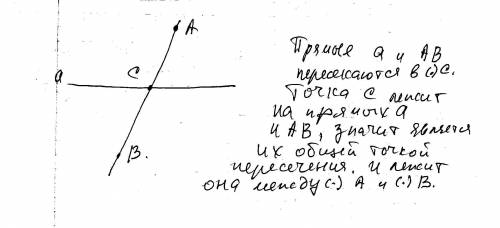 A
Прямые a и AB
пересекаются в (·)C.
a
C
Точка C лежит
на прямых a
и AB, значит является
B.
их общей точкой
пересечения. И лежит
она между (·) A и (·) B.